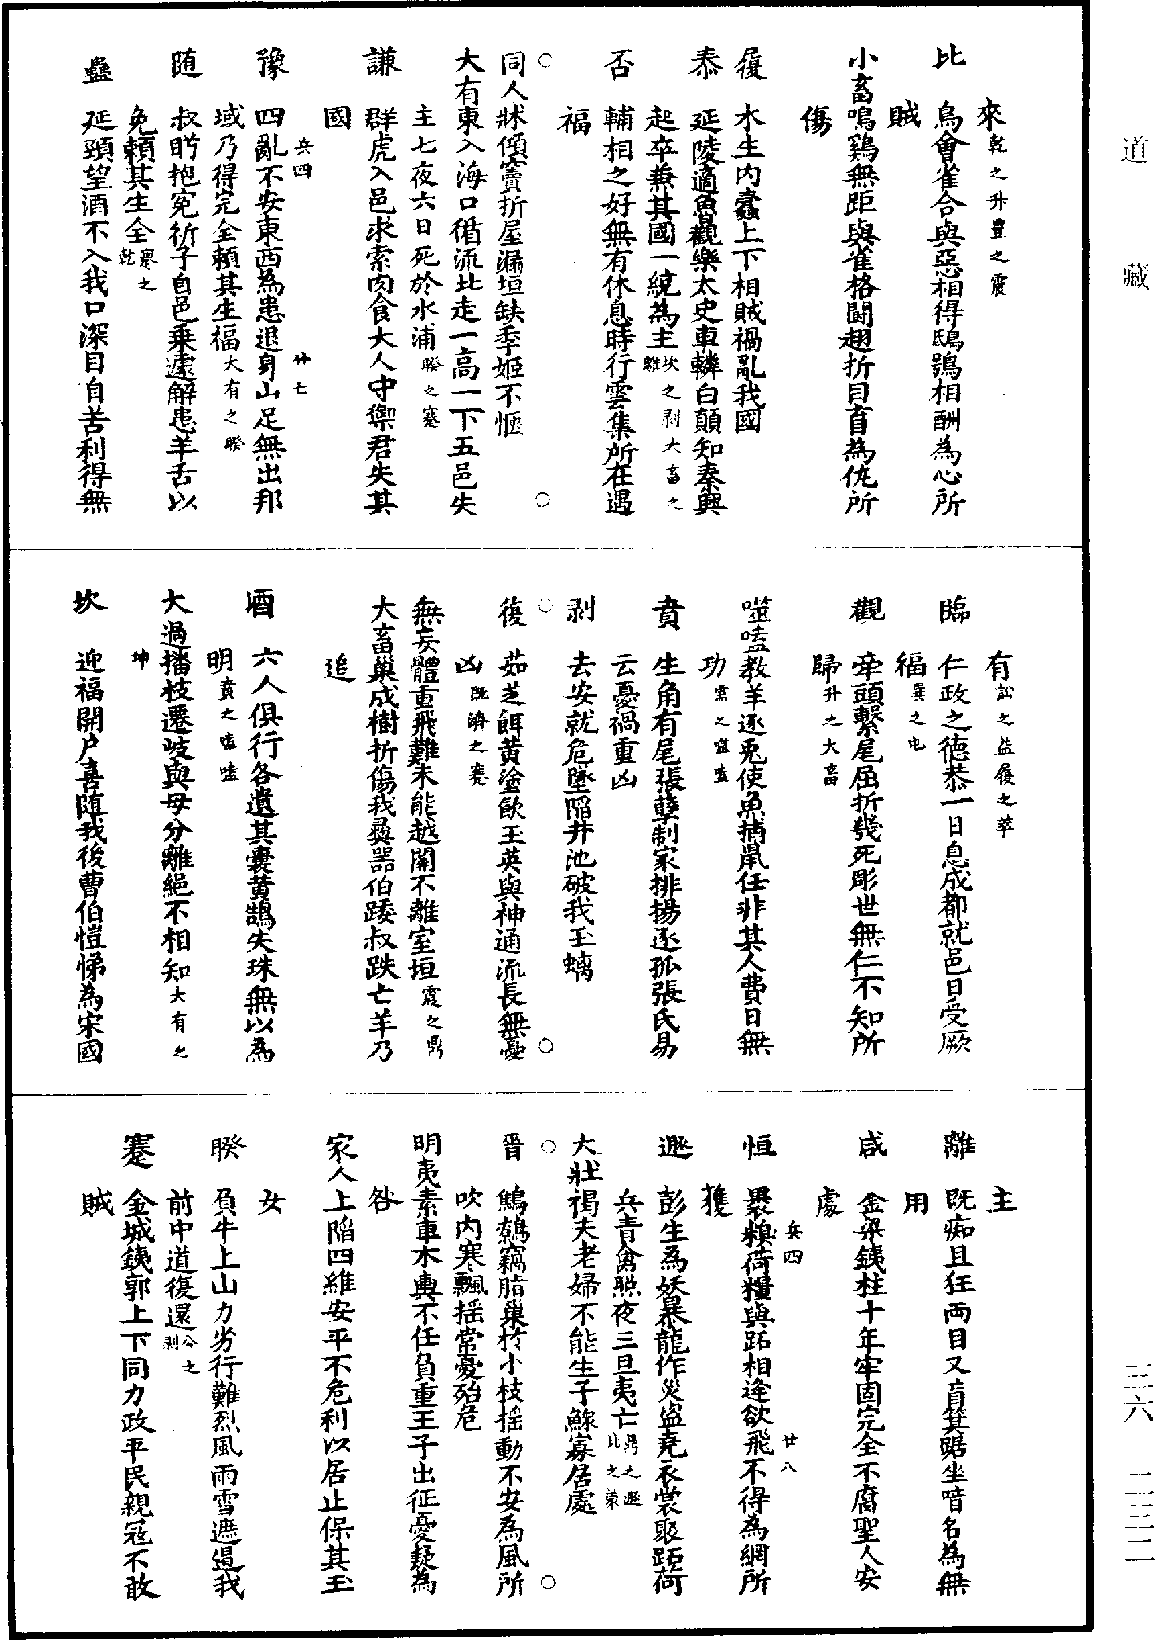 道藏
來乾之升豊之震
比 烏會雀合與惡相得鴟鴞相酬為心所
賊
小畜鳴鷄無距與雀格鬪翅折目盲為仇所
傷
履 水生內蠹上下相賊禍亂我國
泰 延陵適魯觀樂太史車轔白顛知秦興
起卒兼其國一統為主坎之剥大畜之離
否 輔相之好無有休息時行雲集所在遇
福
同人牀傾簀折屋漏垣缺季姬不愜
大有東入海口循流北走一高一下五邑失
主七夜六日死於水浦睽之蹇
謙 群虎入邑求索肉食大人守禦君失其
國
兵四 廿七
豫 四亂不安東西為患退身山足無出邦
域乃得完全賴其生福大有之睽
隨 叔盻抱冤祈子自邑乘遽解患羊舌以
免賴其生全蹇之乾
蠱 延頸望酒不入我口深目自苦利得無
有訟之益履之萃
臨 仁政之德恭一日息成都就邑日受厥
福巽之屯
觀 牽頭繫尾屈折幾死彫世無仁不知所
歸升之大畜
噬嗑教羊逐兎使魚捕鼠任非其人費日無
功需之噬嗑
賁 生角有尾張孽制家排揚逐孤張氏易
云憂禍重凶
剥 去安就危墜陷井池破我玉螭
復 茹芝餌黃塗飲玉英與神通流長無憂
凶既濟之蹇
無妄體重飛難未能越關不離室垣震之鼎
大畜巢成樹折傷我彝器伯踒叔跌亡羊乃
追
頤 六人俱行各遺其囊黃鵠失珠無以為
明賁之噬嗑
大過播枝遷岐與母分離絕不相知大有之
坤
坎 迎福開户喜隨我後曹伯愷悌為宋國
主
離 既痴且狂兩目又盲箕踞坐喑名為無
用
咸 金梁鐵柱十年牢固完全不腐聖人安
處
兵四 廿八
恒 褁糗荷糧與跖相逢欲飛不得為網所
獲
遯 彭生為妖暴龍作災盜堯衣裳聚跖荷
兵青禽照夜三旦夷亡鼎之遯比之蒙
大壯褐夫老婦不能生子鰥寡居處
晉 鷦鷯竊脂巢於小枝搖動不安為風所
吹內寒飄搖常憂殆危
明夷素車木輿不任負重王子出征憂疑為
咎
家人上陷四維安平不危利以居止保其玉
女
睽 負牛上山力劣行難烈風雨雪遮遏我
前中道復還公之剥
蹇 金城鐵郭上下同力政平民親寇不敢
賊
三六 二三二